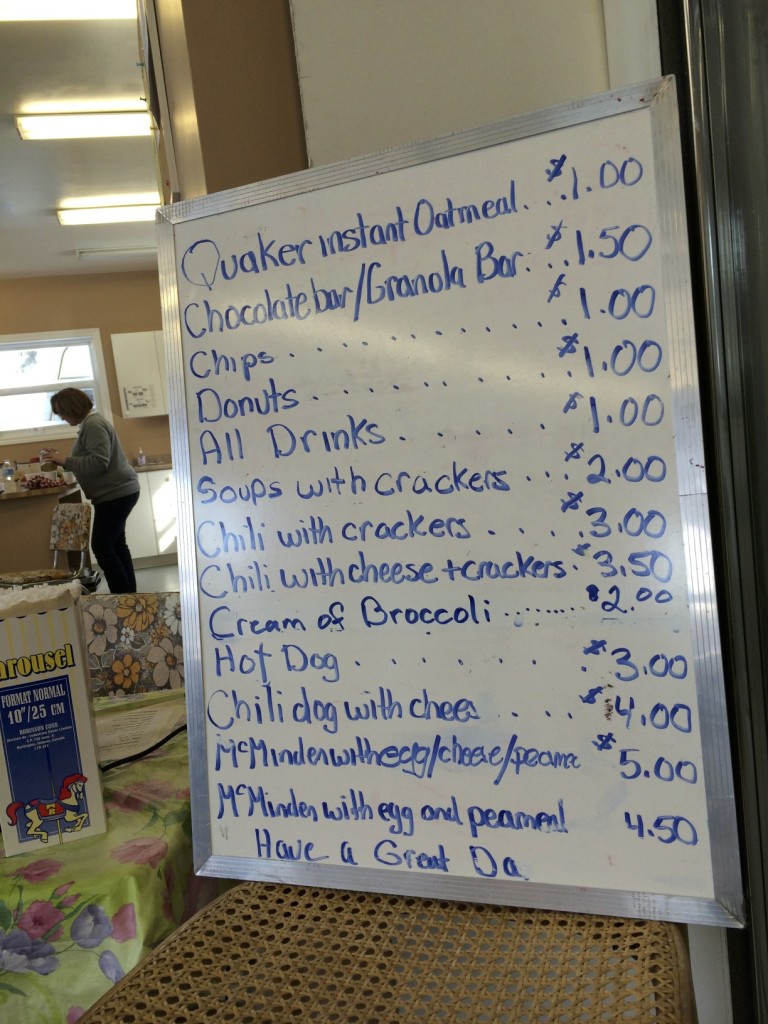 Quaker instant Oatmeal. . . $1.00
Chocolate bar/Granola Bar. . . $1.50
Chips . . . . . . . . . . . $1.00
Donuts . . . . . . . . . . $1.00
All Drinks . . . . . . $1.00
Soups with crackers . . . $2.00
Chili with crackers . . . . $3.00
Chili with cheese + crackers . $3.50
Cream of Broccoli ......... $2.00
Hot Dog . . . . . . . . $3.00
Chili dog with chees . . . . $4.00
McMinden with egg/cheese/peame $5.00
McMinden with egg and peameal 4.50
Have a Great Da
arousel
FORMAT NORMAL
10"/25 CM
ROBINSON CONE